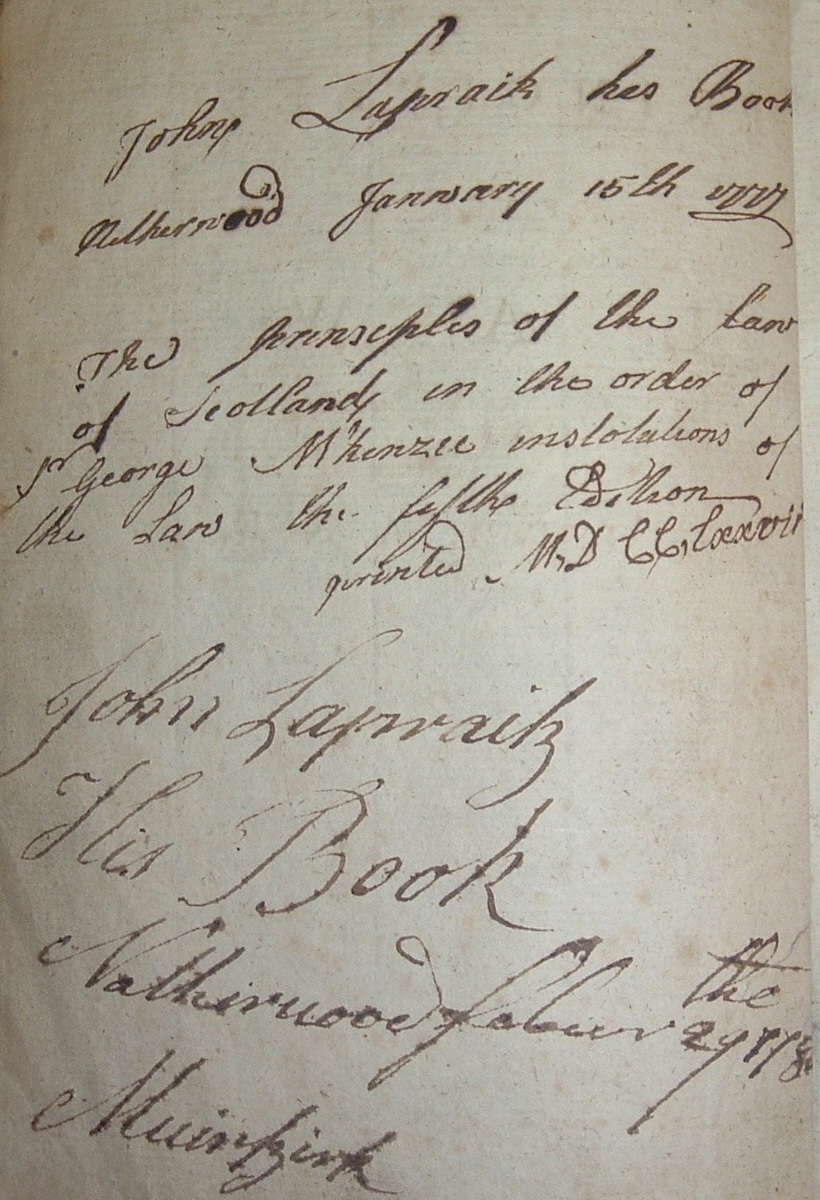 John Lapraik his Book
Netherwood January 15th 1777
The prinseples of the Law
of Scotland in the order of
Sr George Mckenzee instotutions of
the Law the fifthe Edition
printed M,D CC,lxxvii
John Lapraik
His Book
Natherwood febuer the
29 178
Muinkirk